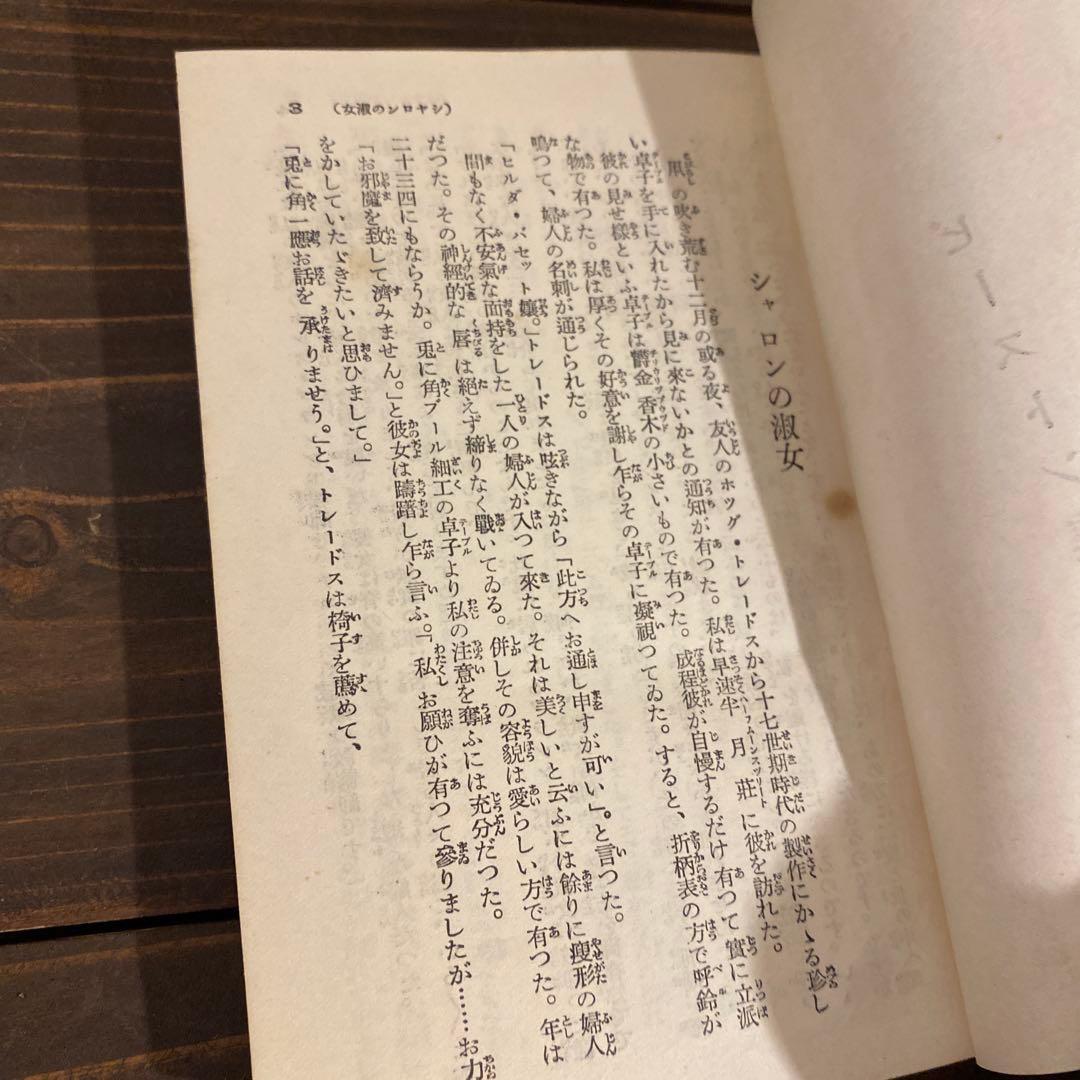 3 (シヤロンの淑女)
シャロンの淑女
凩の吹き荒む十二月の或る夜、友人のホッグ・トレードスから十七世期時代の製作にかゝる珍し
い卓子を手に入れたから見に來ないかとの通知が有つた。私は早速半月莊に彼を訪れた。
彼の見せ様といふ卓子は欝金香木の小さいもので有つた。成程彼が自慢するだけ有つて實に立派
な物で有つた。私は厚くその好意を謝し乍らその卓子に凝視つてゐた。すると、折柄表の方で呼鈴が
鳴つて、婦人の名刺が通じられた。
「ヒルダ・バセット孃。」トレードスは呟きながら「此方へお通し申すが可い」。と言つた。
間もなく不安氣な面持をした一人の婦人が入つて來た。それは美しいと云ふには餘りに瘦形の婦人
だつた。その神經的な唇は絶えず締りなく戰いてゐる。併しその容貌は愛らしい方で有つた。年は
二十三四にもならうか。兎に角ブール細工の卓子より私の注意を奪ふには充分だつた。
「お邪魔を致して濟みません。」と彼女は躊躇し乍ら言ふ。「私お願ひが有つて參りましたが……お力
をかしていたゞきたいと思ひまして。」
「兎に角一應お話を承りませう。」と、トレードスは椅子を薦めて、